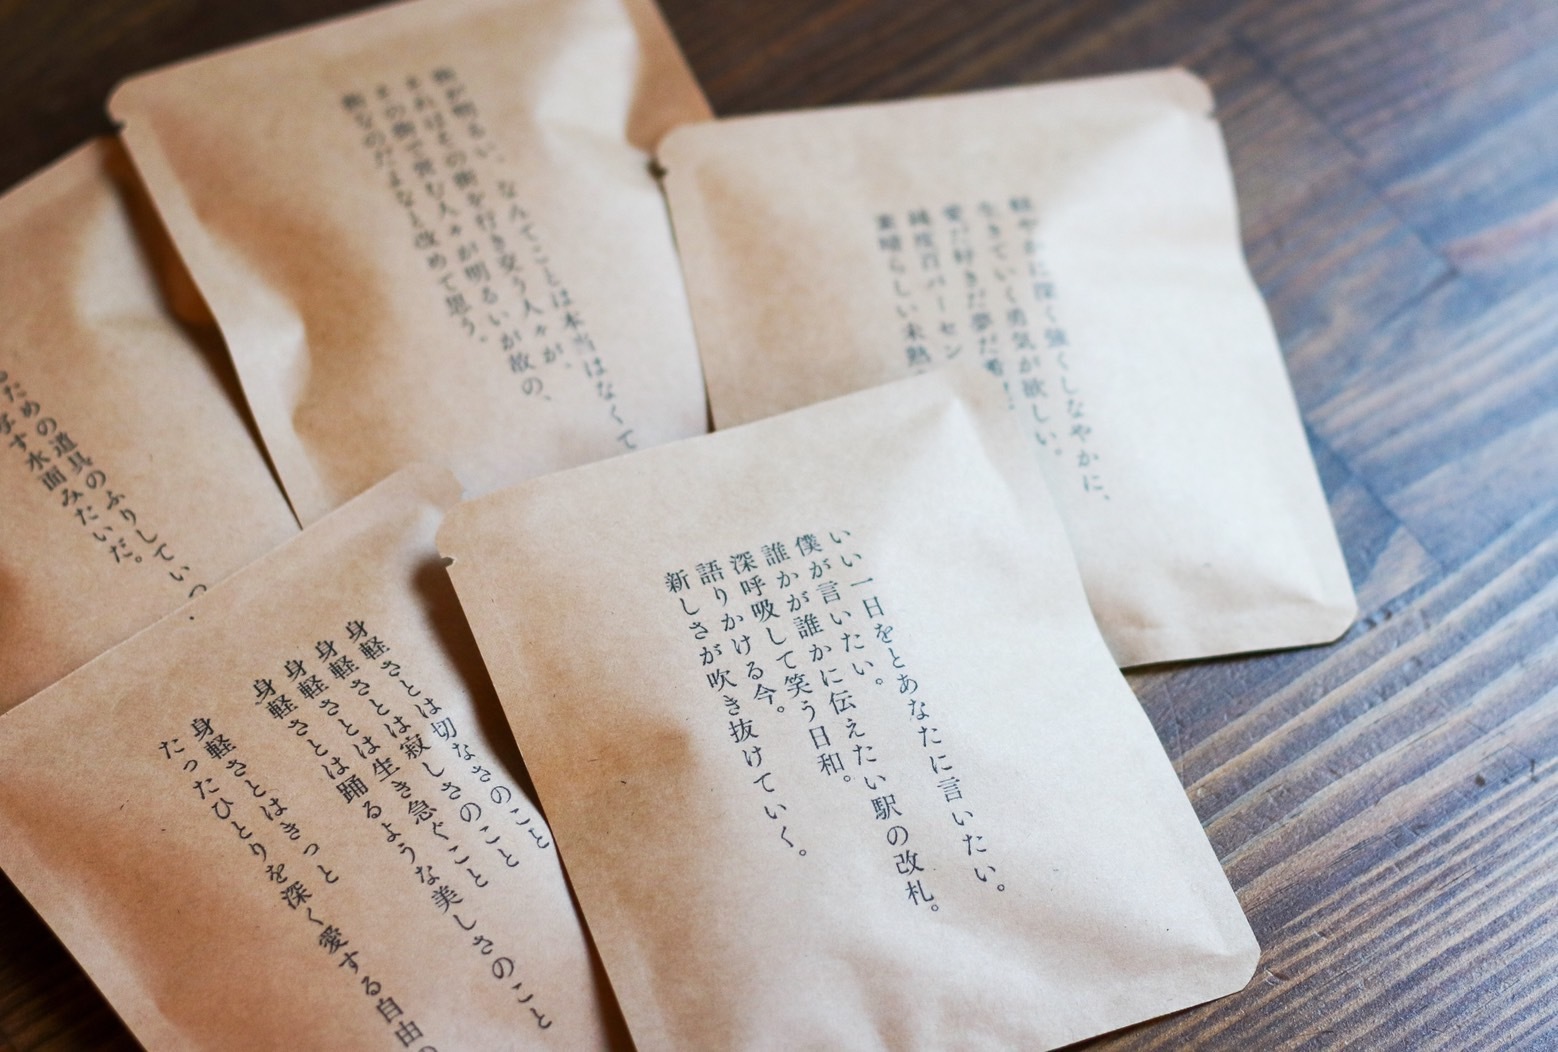 いい一日をとあなたに言いたい。
僕が言いたい。
誰かが誰かに伝えたい駅の改札。
深呼吸して笑う日和。
語りかける今。
新しさが吹き抜けていく。
身軽さとは切なさのこと
身軽さとは寂しさのこと
身軽さとは生き急ぐこと
身軽さとは踊るような美しさのこと
身軽さとはきっと
たったひとりを深く愛する自由の
街が明るい、なんてことは本当はなくて
それはその街を行き交う人々が、
その街で営む人々が明るいが故の、
街なのだよなと改めて思う。
軽やかに深く強くしなやかに、
生きていく勇気が欲しい。
愛だ好きだ夢だ
純度百パーセン
素晴らしい未熟
ための道具のふりしていっ
す水面みたいだ。